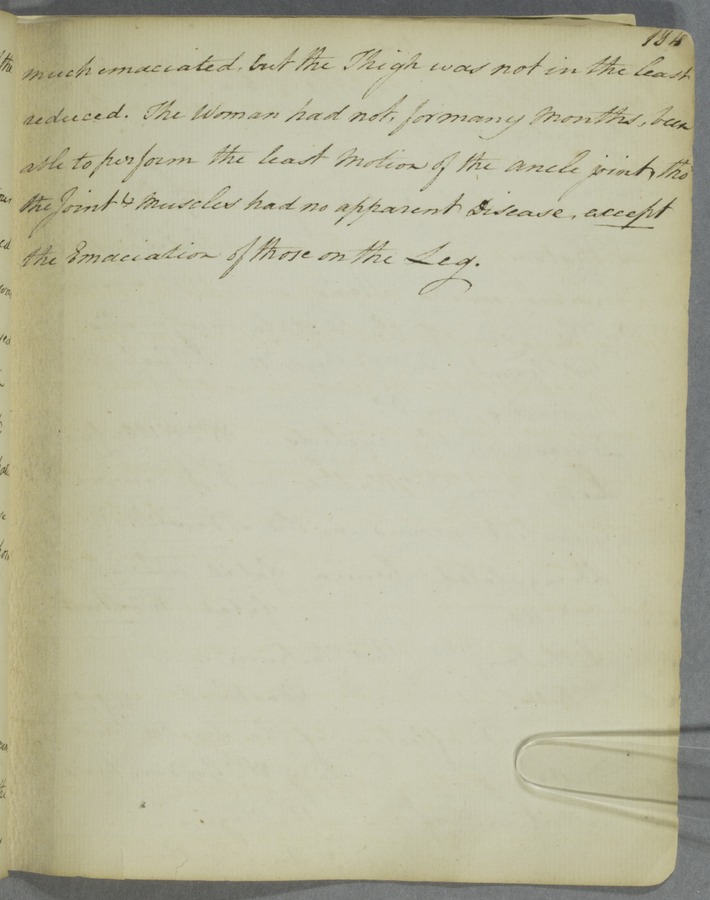 134
much emaciated, but the Thigh was not in the least
reduced. The Woman had not, for many Months, been
able to perform the least Motion of the ancle joint, tho
the Joint & Muscles had no apparent Disease, except
the Emaciation of those on the Leg.